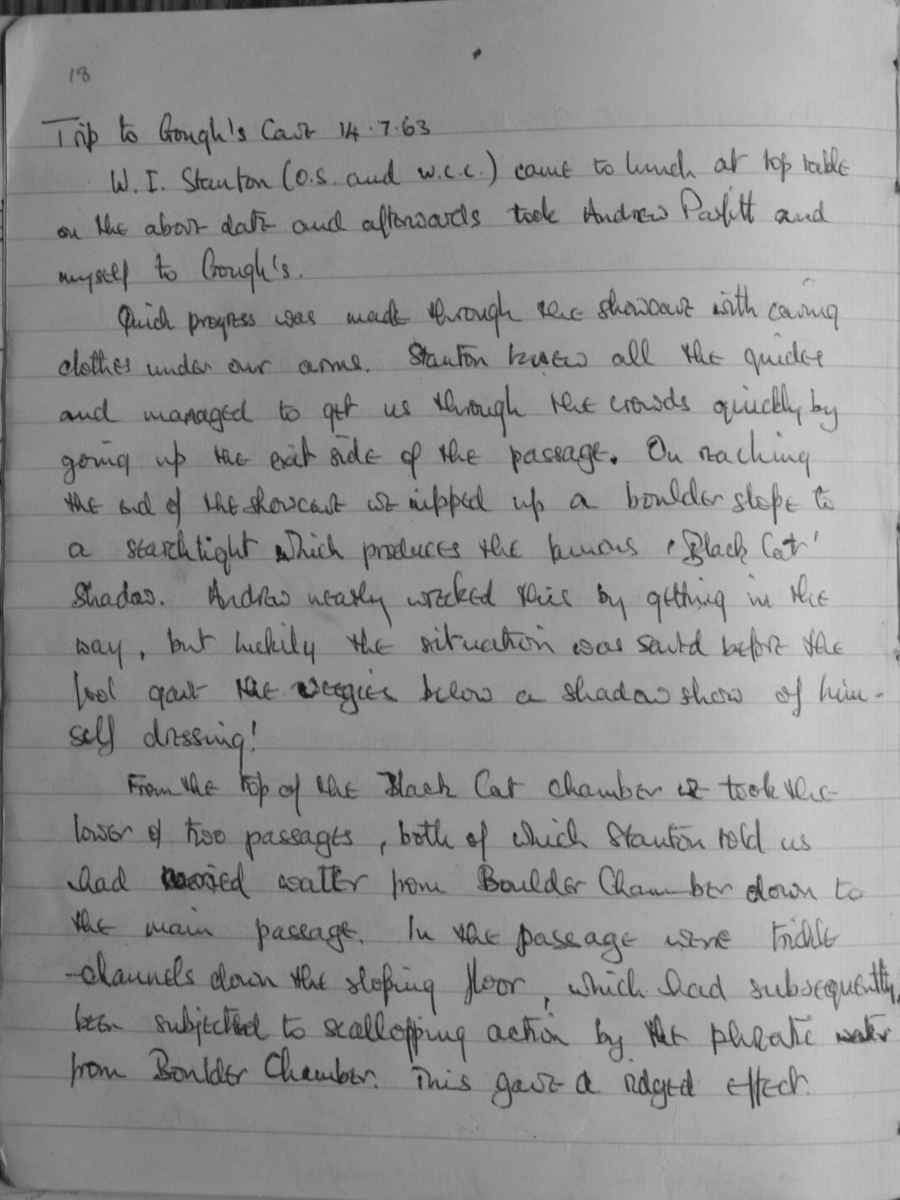 18
Trip to Gough's Cave 14.7.63
W. I. Stanton (O.S. and W.C.C.) came to lunch at top table
on the above date and afterwards took Andrew Parfitt and
myself to Gough's.
Quick progress was made through the showcave with caving
clothes under our arms. Stanton knew all the guides
and managed to get us through the crowds quickly by
going up the exit side of the passage. On reaching
the end of the showcave we nipped up a boulder slope to
a searchlight which produces the famous 'Black Cat'
shadow. Andrew nearly wrecked this by getting in the
way, but luckily the situation was saved before the
fool gave the weegies below a shadow show of him-
self dressing!
From the top of the Black Cat chamber we took the
lower of two passages, both of which Stanton told us
had carried water from Boulder Chamber down to
the main passage. In the passage were trickle
channels down the sloping floor, which had subsequently
been subjected to scallopping action by the phreatic water
from Boulder Chamber. This gave a ridged effect.